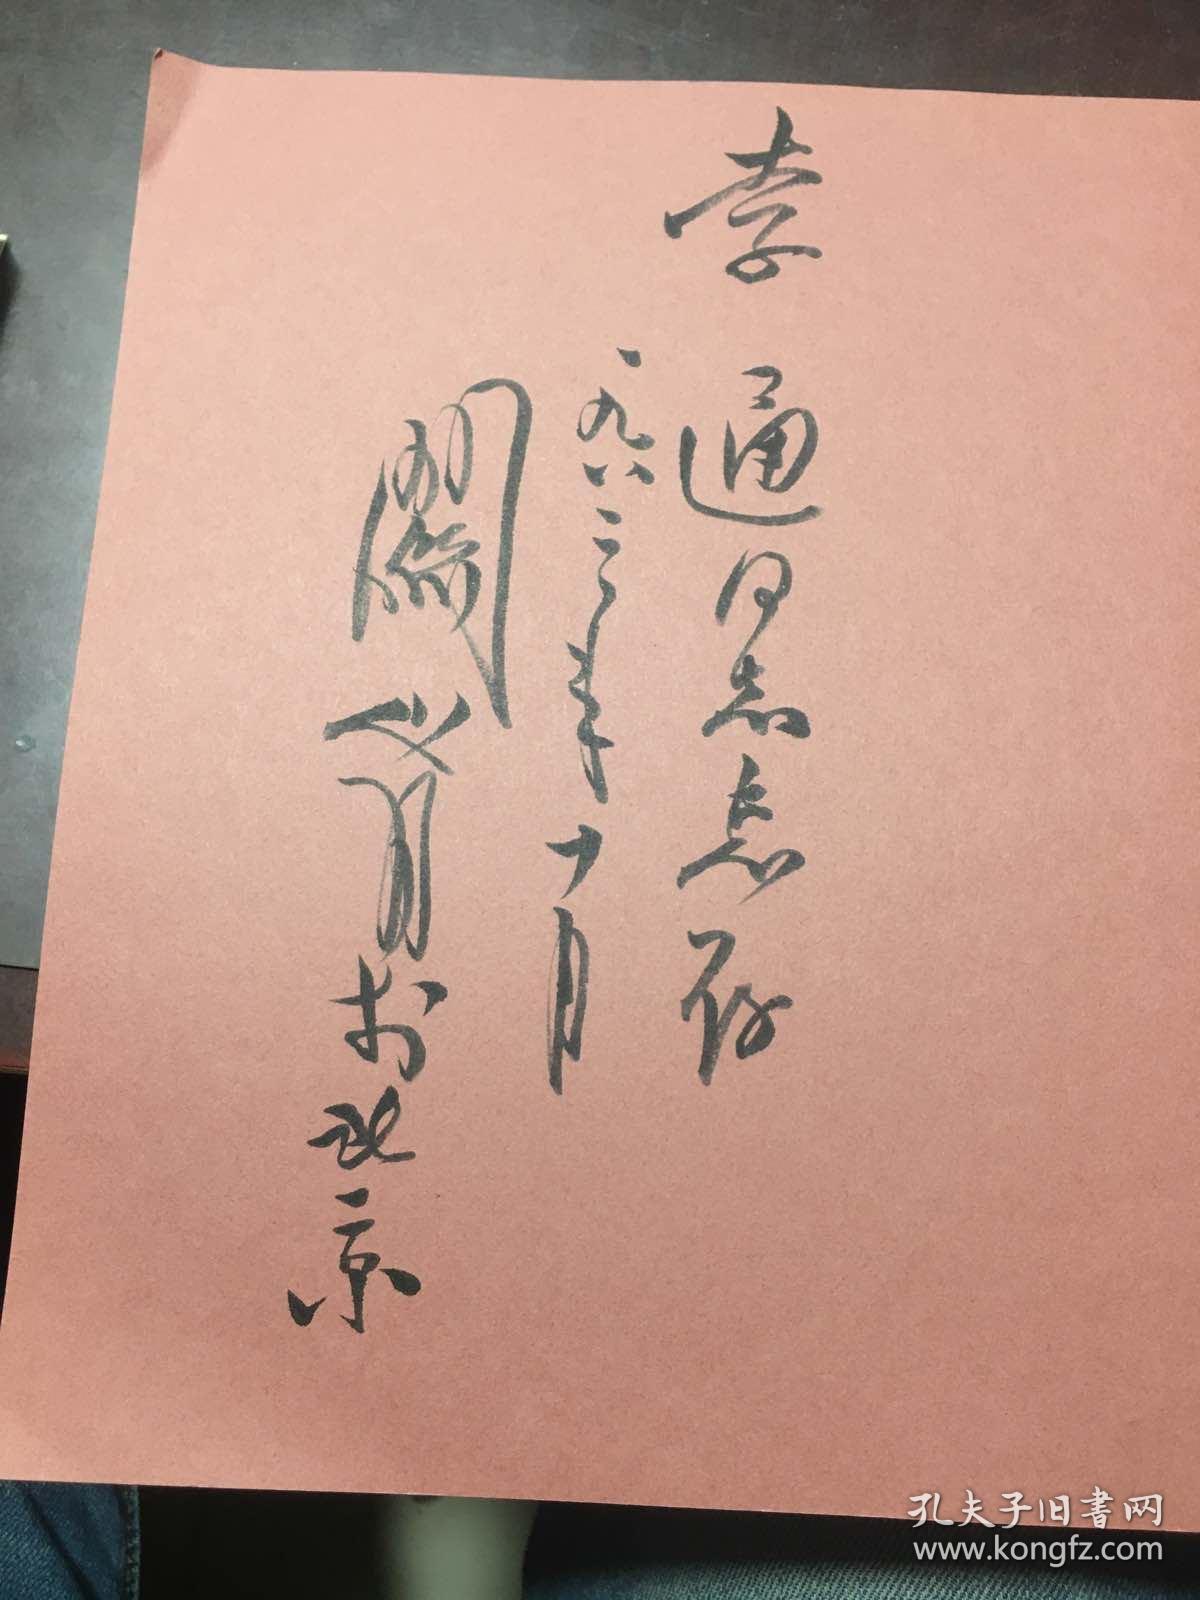 李 通同志惠存
一九八三年十月
關山月於北京
孔夫子旧書网
www.kongfz.com